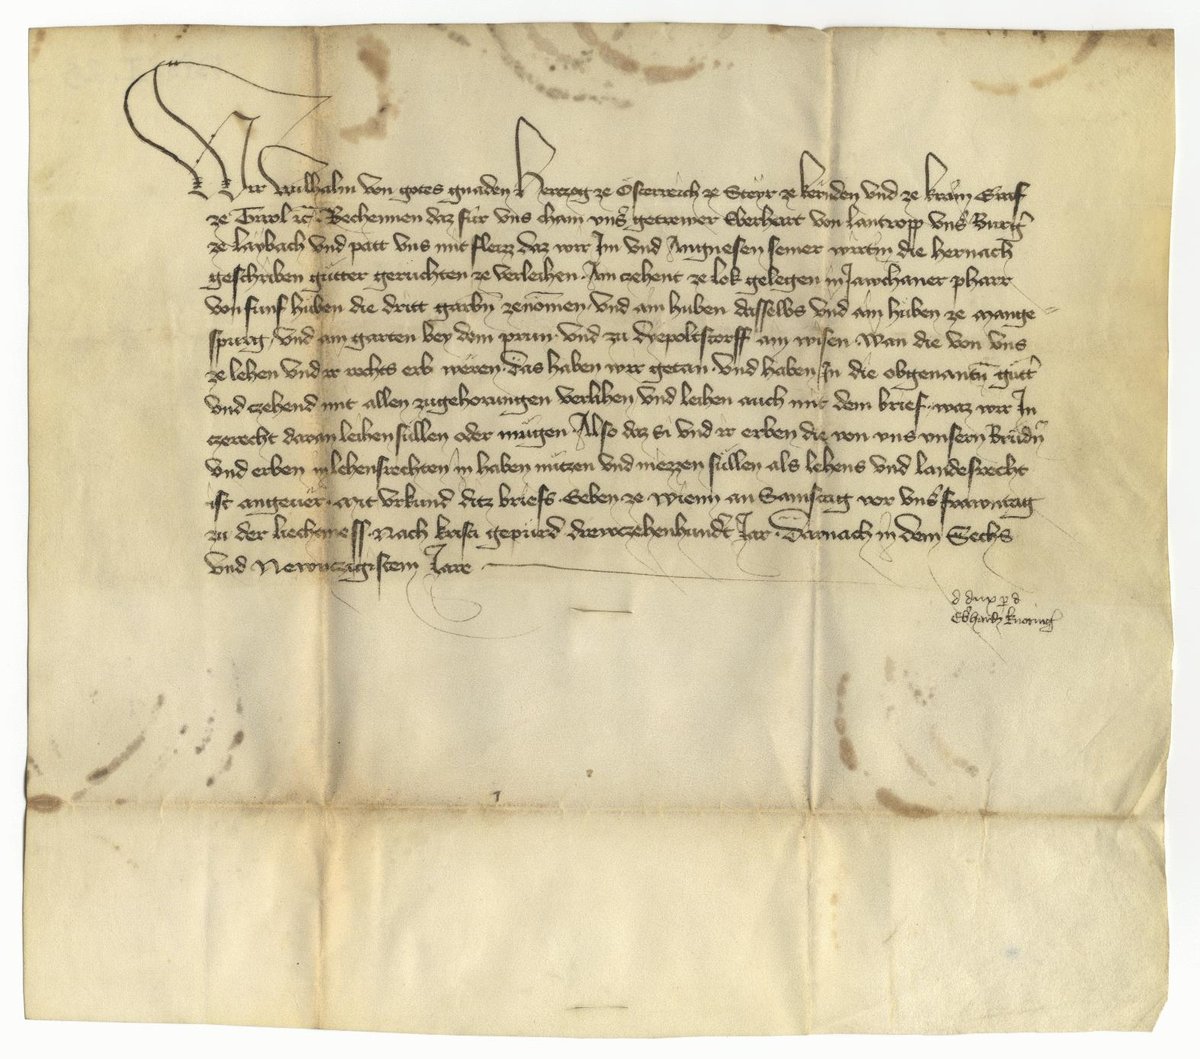 Wir Wilhalm von gotes gnaden Herczog ze Österreich ze Steyr ze kernden und ze krain Graf
ze Tirol ꝛc. Bechennen daz für uns cham unsˀ getrewer Eberhart von Lantropp unsˀ Burgˀ
ze Laybach und patt uns mit fleizz daz wir Im und Anngnesen seiner wirtin die hernach
geschriben gütter geruchten ze verleihen. Ain czehent ze lok gelegen in Jawchaner pharr
von fünf huben die dritt garbn̄ zenemen und ain huben daselbs und ain huben ze Mange
spurg, und ain garten bey dem prun. und zu dyepoltstorff ain wisen. Wan die von uns
ze lehen und ir rechts erb weren. Das haben wir getan und haben In die obgenantn̄ güttˀ
und czehend mit allen zugehorungen verlihen und leihen auch mit dem brief. waz wir In
czerecht daran leihen süllen oder mügen. Also daz si und ir erben die von uns unsern Brüdˀn
und erben in lehensrechten inhaben nützen und niezzen süllen als lehens und landesrecht
ist angever. Mit urkund ditz briefs. Geben ze Wienn an Samstag vor unsˀ frawntag
zu der liechtmess. Nach kristi gepurd drewczehenhundˀt Jar. Darnach in dem Sechs
und Newnczigistem Jare
d dux ꝑ d
Ebˀhardˀ